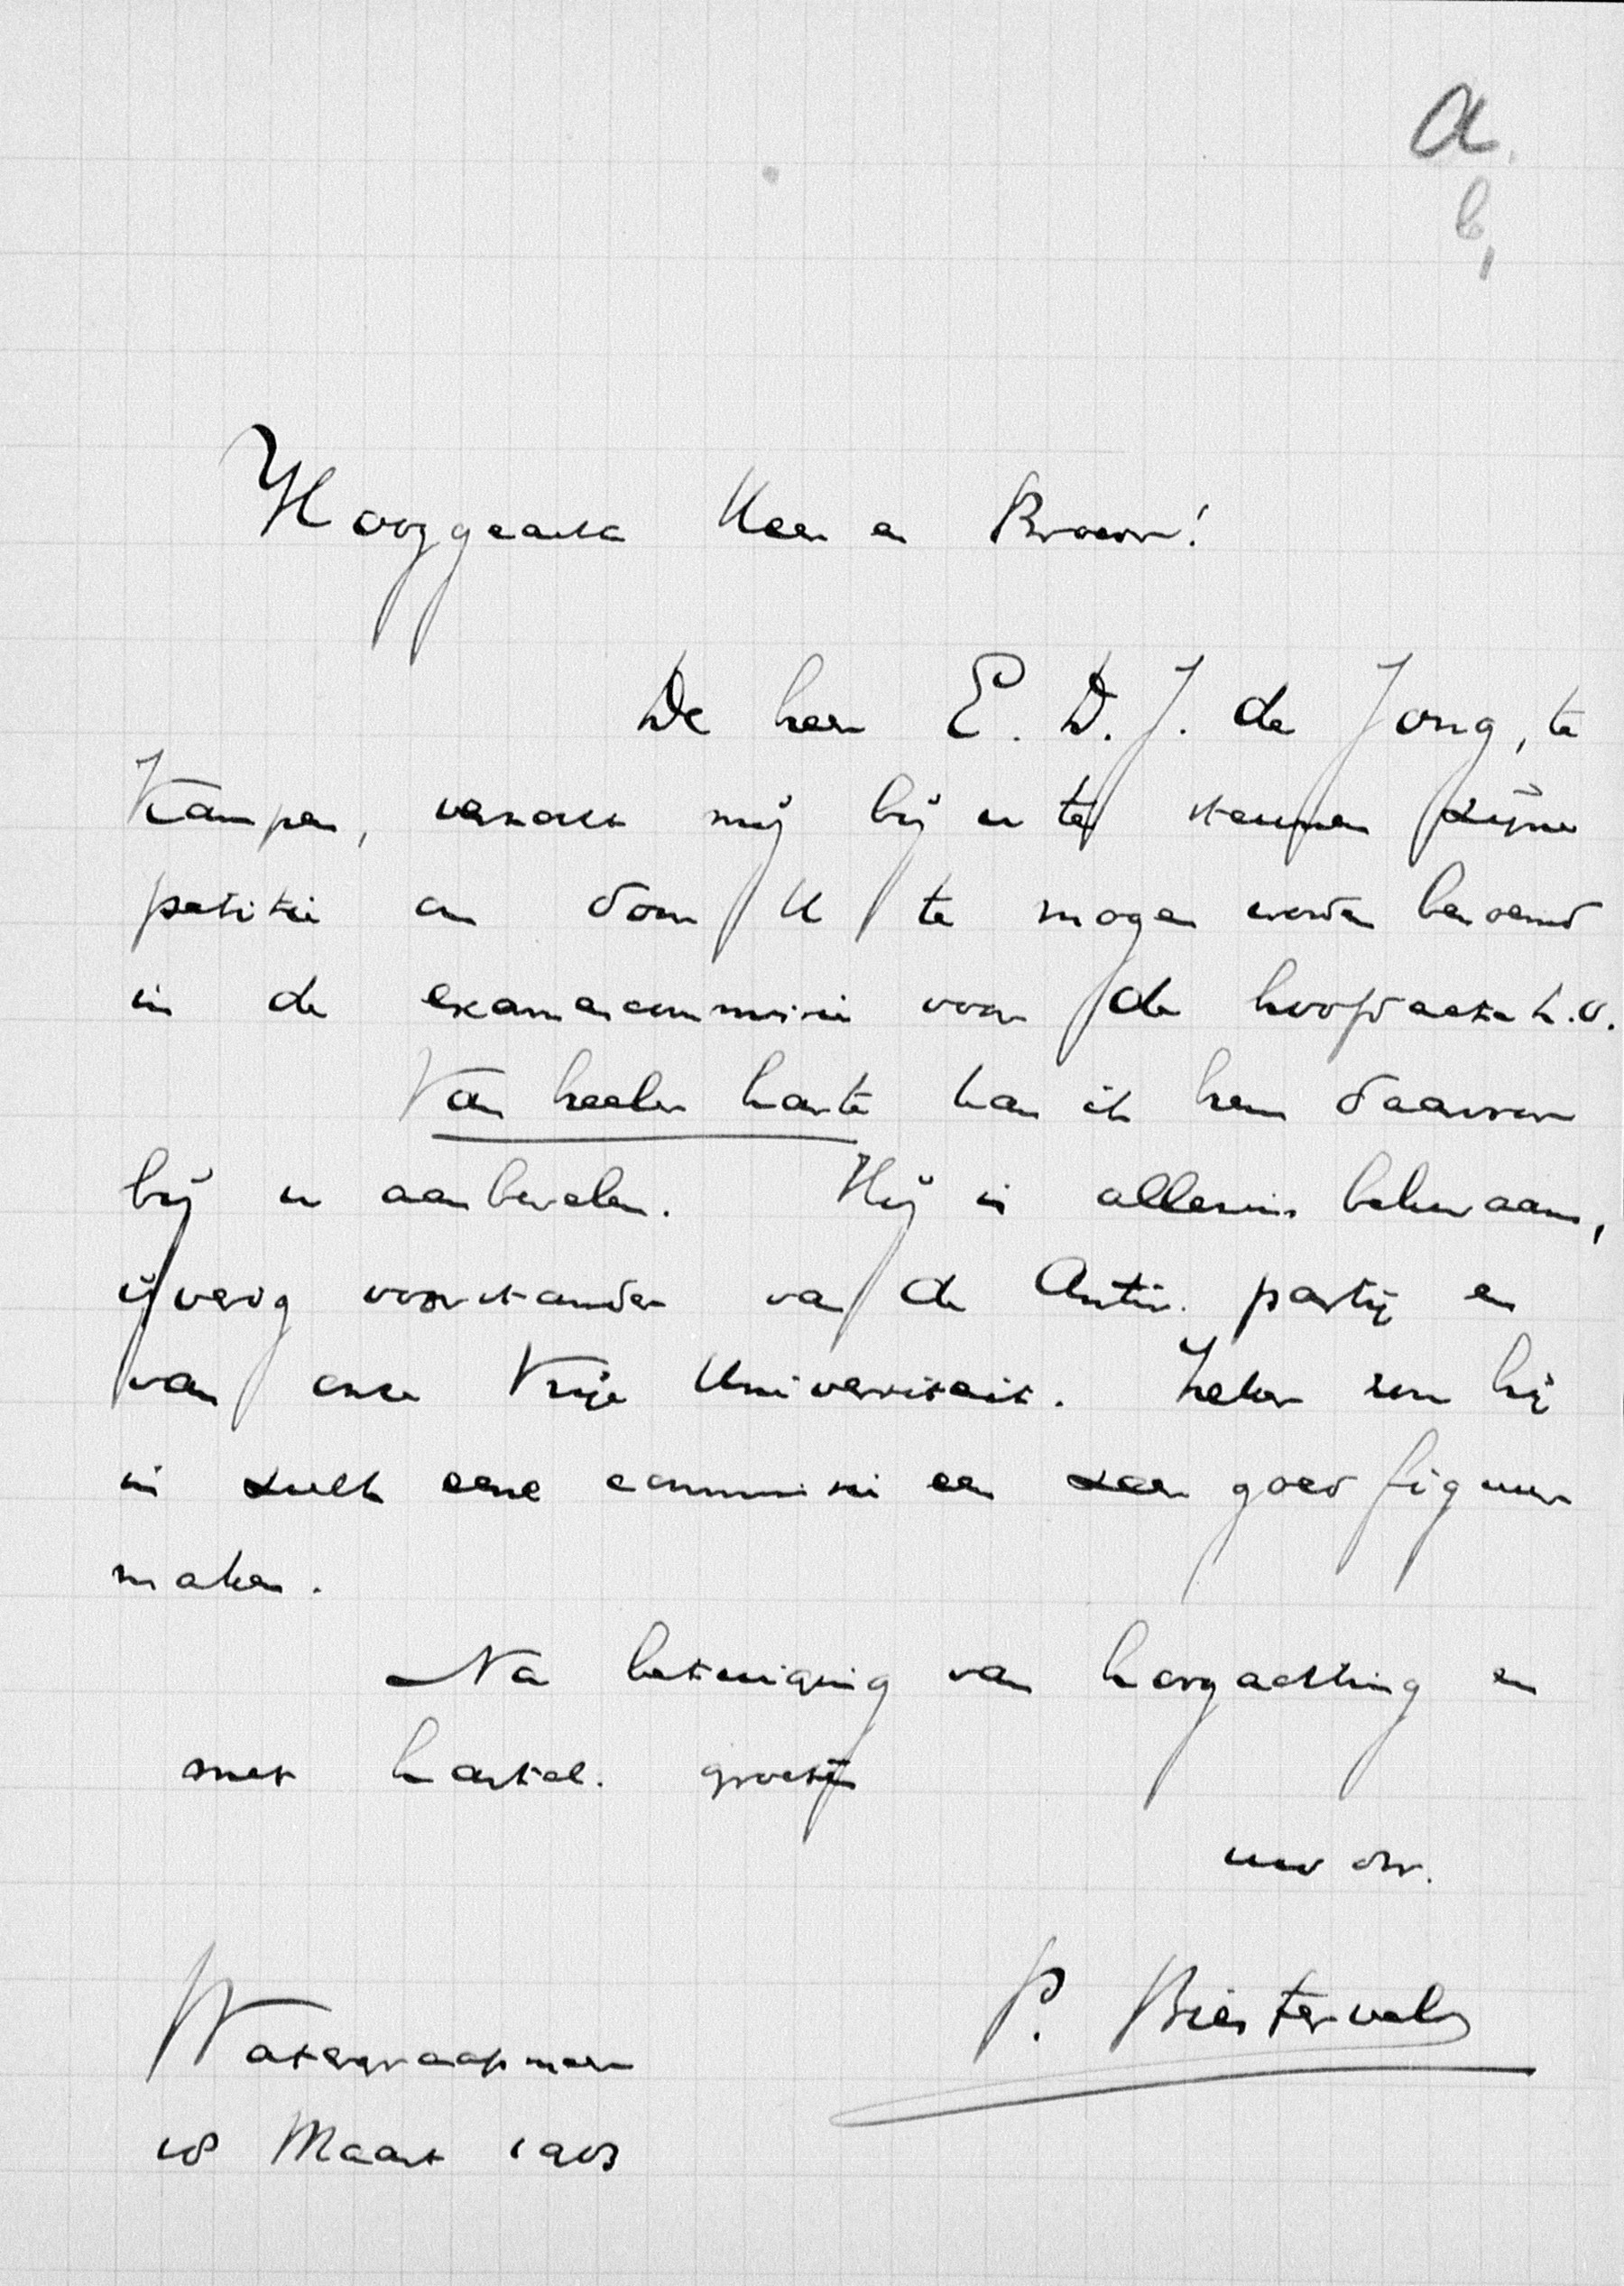 a.
b,
Hooggeachte Heer en Broeder!
De heer E. D. J. de Jong, te
Kampen, verzocht mij bij u te steunen zijne
petitie om door U te mogen worden benoemd
in de examencommissie voor de hoofdacte l.o.
Van heeler harte kan ik hem daarvoor
bij u aanbevelen. Hij is alleszins bekwaam,
ijverig voorstander van de Antir. partij en
van onze Vrije Universiteit. Zeker zou hij
in zulk eene commissie een zeer goed figuur
maken.
Na betuiging van hoogachting en
met hartel. groeten
uw dw.
P. Biesterveld
Watergraafsmeer
18 Maart 1903